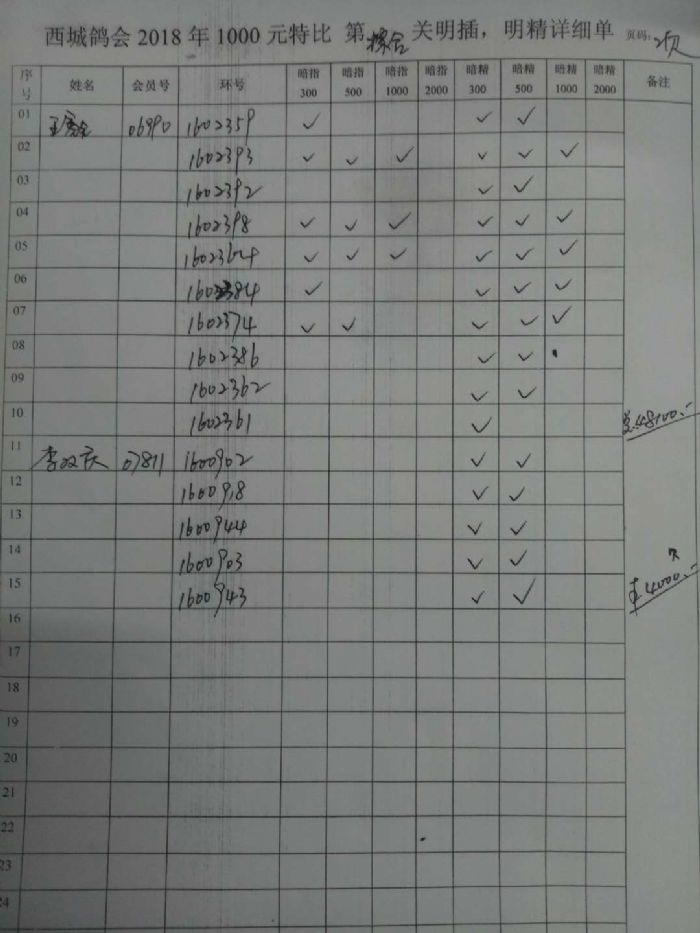 西城鸽会 2018 年 1000 元特比 第 综合 关明插，明精详细单 页码：
序号 姓名 会员号 环号 暗指300 暗指500 暗指1000 暗指2000 暗精300 暗精500 暗精1000 暗精2000 备注
01 06990 1602359 ✓ ✓ ✓
02 1602393 ✓ ✓ ✓ ✓ ✓ ✓
03 1602392 ✓ ✓
04 1602398 ✓ ✓ ✓ ✓ ✓ ✓
05 1602364 ✓ ✓ ✓ ✓ ✓ ✓
06 1602384 ✓ ✓ ✓ ✓
07 1602374 ✓ ✓ ✓ ✓ ✓
08 1602386 ✓ ✓
09 1602362 ✓ ✓
10 1602361 ✓ 48100.-
11 李双庆 07811 1600902 ✓ ✓
12 1600918 ✓ ✓
13 1600944 ✓ ✓
14 1600903 ✓ ✓
15 1600943 ✓ ✓ 4000.-
16
17
18
19
20
21
22
23
24